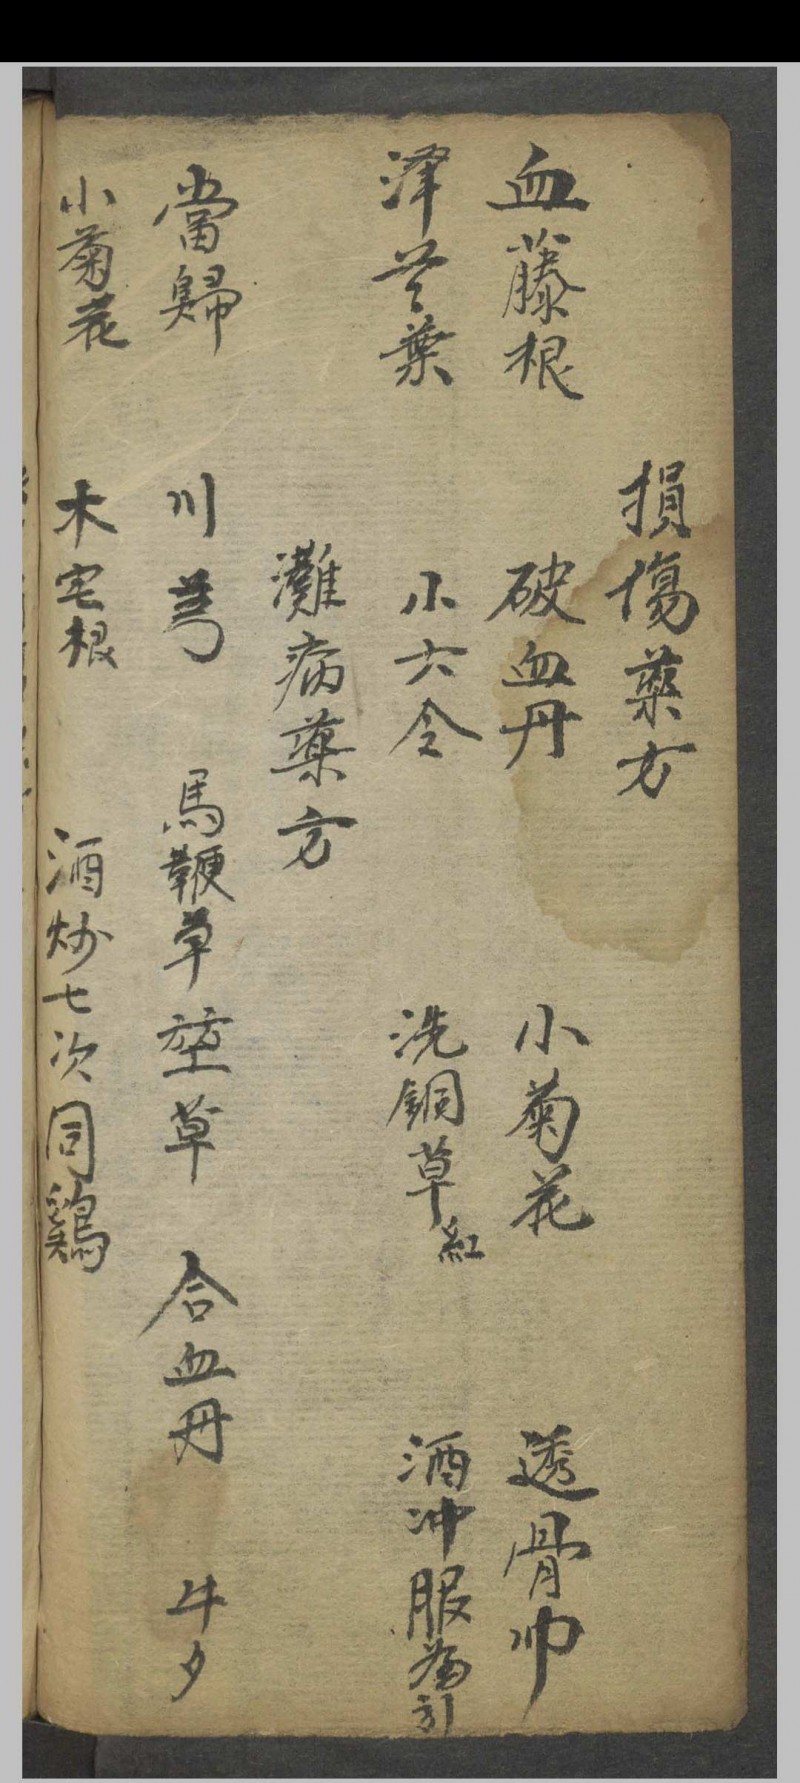 損傷藥方
血藤根 破血丹 小菊花 透骨巾
澤苓葉 小六令 洗銅草 紅 酒冲服為引
灘病藥方
當歸 川芎 馬鞭草 草 合血丹 牛夕
小菊花 木宅根 酒炒七次同鷄